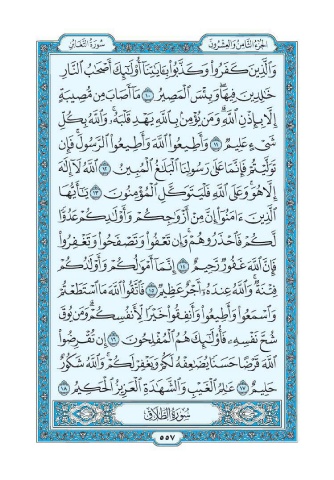 الجزء الثامن والعشرون
سورة التغابن
وَالَّذِينَ كَفَرُوا وَكَذَّبُوا بِـَٔايَٰتِنَآ أُو۟لَٰٓئِكَ أَصْحَٰبُ النَّارِ
خَٰلِدِينَ فِيهَا ۖ وَبِئْسَ الْمَصِيرُ ١٠ مَآ أَصَابَ مِن مُّصِيبَةٍ
إِلَّا بِإِذْنِ اللَّهِ ۗ وَمَن يُؤْمِنۢ بِاللَّهِ يَهْدِ قَلْبَهُۥ ۚ وَاللَّهُ بِكُلِّ
شَىْءٍ عَلِيمٌ ١١ وَأَطِيعُوا اللَّهَ وَأَطِيعُوا الرَّسُولَ ۚ فَإِن
تَوَلَّيْتُمْ فَإِنَّمَا عَلَىٰ رَسُولِنَا الْبَلَٰغُ الْمُبِينُ ١٢ اللَّهُ لَآ إِلَٰهَ
إِلَّا هُوَ ۚ وَعَلَى اللَّهِ فَلْيَتَوَكَّلِ الْمُؤْمِنُونَ ١٣ يَٰٓأَيُّهَا
الَّذِينَ ءَامَنُوٓا إِنَّ مِنْ أَزْوَٰجِكُمْ وَأَوْلَٰدِكُمْ عَدُوًّا
لَّكُمْ فَاحْذَرُوهُمْ ۚ وَإِن تَعْفُوا وَتَصْفَحُوا وَتَغْفِرُوا
فَإِنَّ اللَّهَ غَفُورٌ رَّحِيمٌ ١٤ إِنَّمَآ أَمْوَٰلُكُمْ وَأَوْلَٰدُكُمْ
فِتْنَةٌ ۚ وَاللَّهُ عِندَهُۥٓ أَجْرٌ عَظِيمٌ ١٥ فَاتَّقُوا اللَّهَ مَا اسْتَطَعْتُمْ
وَاسْمَعُوا وَأَطِيعُوا وَأَنفِقُوا خَيْرًا لِّأَنفُسِكُمْ ۗ وَمَن يُوقَ
شُحَّ نَفْسِهِۦ فَأُو۟لَٰٓئِكَ هُمُ الْمُفْلِحُونَ ١٦ إِن تُقْرِضُوا
اللَّهَ قَرْضًا حَسَنًا يُضَٰعِفْهُ لَكُمْ وَيَغْفِرْ لَكُمْ ۚ وَاللَّهُ شَكُورٌ
حَلِيمٌ ١٧ عَٰلِمُ الْغَيْبِ وَالشَّهَٰدَةِ الْعَزِيزُ الْحَكِيمُ ١٨
سورة الطلاق
٥٥٧